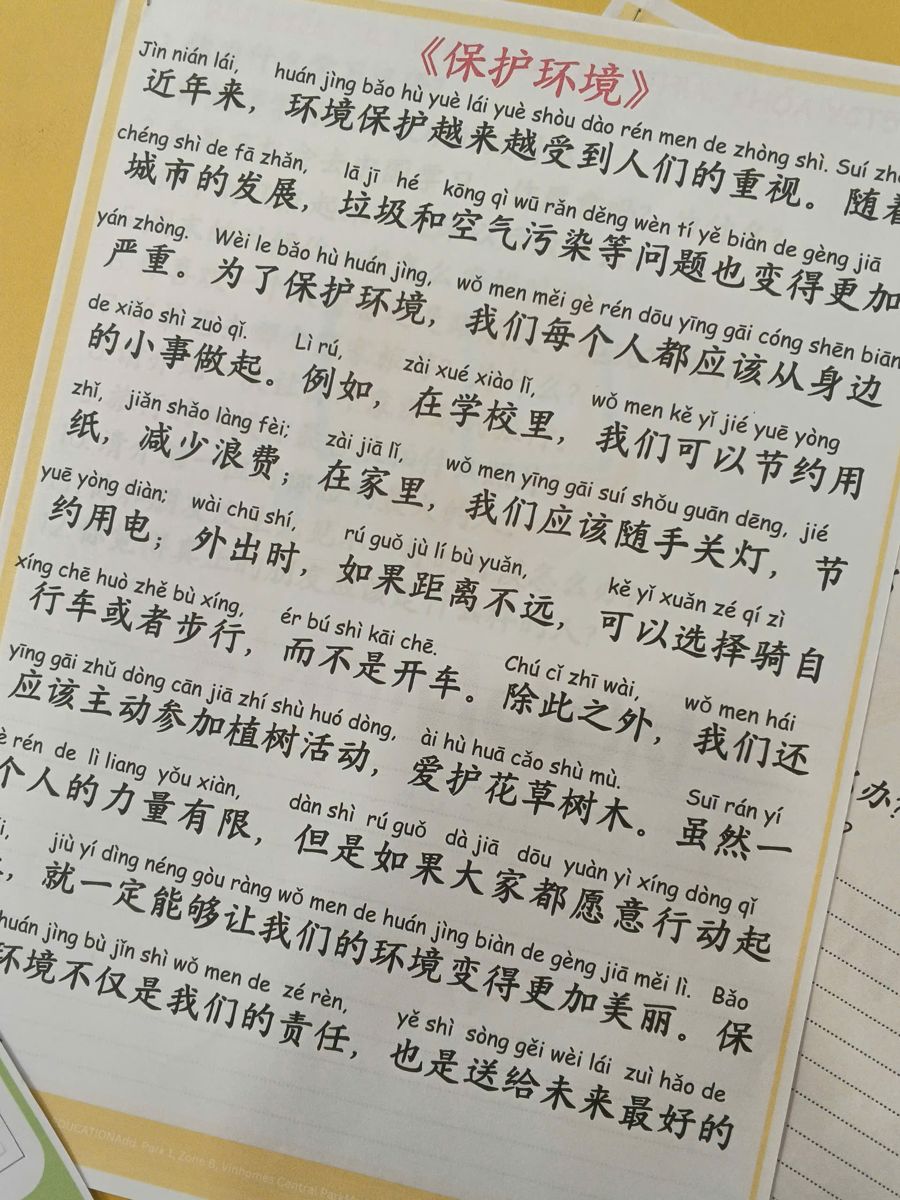 《保护环境》
Jìn nián lái, huán jìng bǎo hù yuè lái yuè shòu dào rén men de zhòng shì. Suí zh
近年来，环境保护越来越受到人们的重视。随着
chéng shì de fā zhǎn, lā jī hé kōng qì wū rǎn děng wèn tí yě biàn de gèng jiā
城市的发展，垃圾和空气污染等问题也变得更加
yán zhòng. Wèi le bǎo hù huán jìng, wǒ men měi gè rén dōu yīng gāi cóng shēn biān
严重。为了保护环境，我们每个人都应该从身边
de xiǎo shì zuò qǐ. Lì rú, zài xué xiào lǐ, wǒ men kě yǐ jié yuē yòng
的小事做起。例如，在学校里，我们可以节约用
zhǐ, jiǎn shǎo làng fèi; zài jiā lǐ, wǒ men yīng gāi suí shǒu guān dēng, jié
纸，减少浪费；在家里，我们应该随手关灯，节
yuē yòng diàn; wài chū shí, rú guǒ jù lí bù yuǎn, kě yǐ xuǎn zé qí zì
约用电；外出时，如果距离不远，可以选择骑自
xíng chē huò zhě bù xíng, ér bú shì kāi chē. Chú cǐ zhī wài, wǒ men hái
行车或者步行，而不是开车。除此之外，我们还
yīng gāi zhǔ dòng cān jiā zhí shù huó dòng, ài hù huā cǎo shù mù. Suī rán yí
应该主动参加植树活动，爱护花草树木。虽然一
è rén de lì liang yǒu xiàn, dàn shì rú guǒ dà jiā dōu yuàn yì xíng dòng qǐ
个人的力量有限，但是如果大家都愿意行动起
jiù yí dìng néng gòu ràng wǒ men de huán jìng biàn de gèng jiā měi lì. Bǎo
，就一定能够让我们的环境变得更加美丽。保
huán jìng bù jǐn shì wǒ men de zé rèn, yě shì sòng gěi wèi lái zuì hǎo de
环境不仅是我们的责任，也是送给未来最好的
EDUCATIONAdd: Park 1, Zone B, Vinhomes Central Park
办?